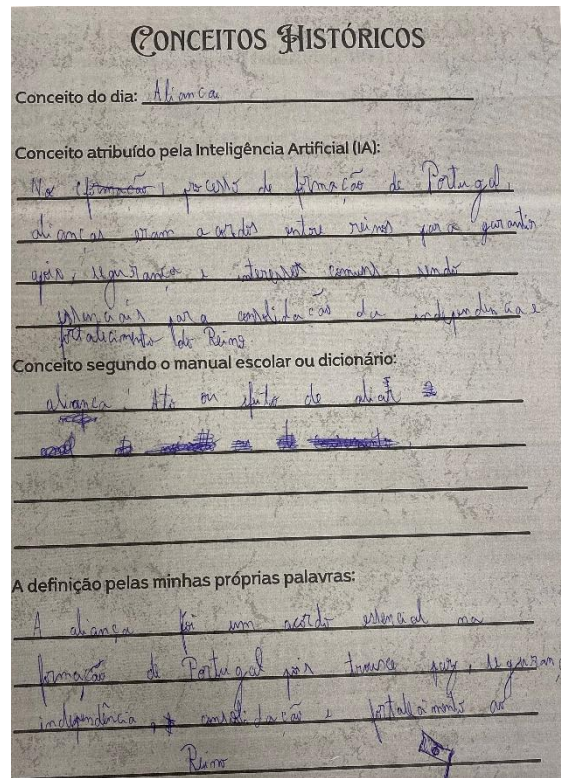 CONCEITOS HISTÓRICOS
Conceito do dia: Aliança
Conceito atribuído pela Inteligência Artificial (IA):
No processo de formação de Portugal
alianças eram acordos entre reinos para garantir
apoio, segurança e interesses comuns, sendo
essenciais para a consolidação da independência e
fortalecimento do Reino.
Conceito segundo o manual escolar ou dicionário:
aliança: Ato ou efeito de aliar
A definição pelas minhas próprias palavras:
A aliança foi um acordo essencial na
formação de Portugal pois trouxe paz, seguran
independência, consolidação e fortalecimento ao
Reino